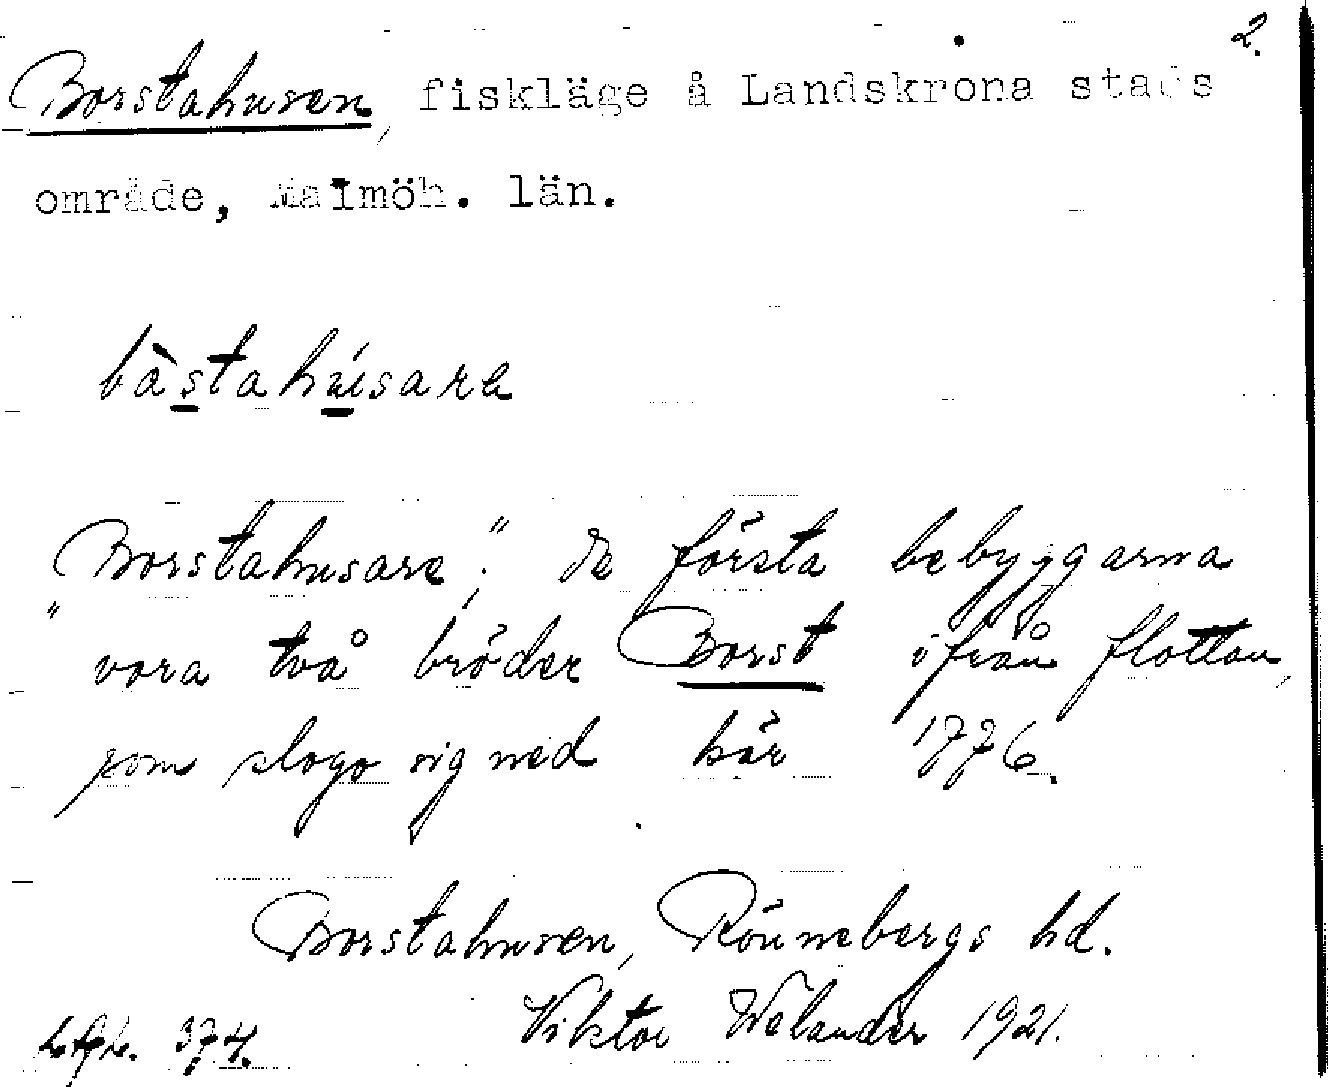 2.
Borstahusen, fiskläge å Landskrona stads
område, Malmöh. län.
bàstahúsara
"Borstahusare"; de första bebyggarna
"vora två bröder Borst ifrån flottan,
som slogo sig ned här 1776.
Borstahusen, Rönnebergs hd.
Viktor Welander 1921.
374.